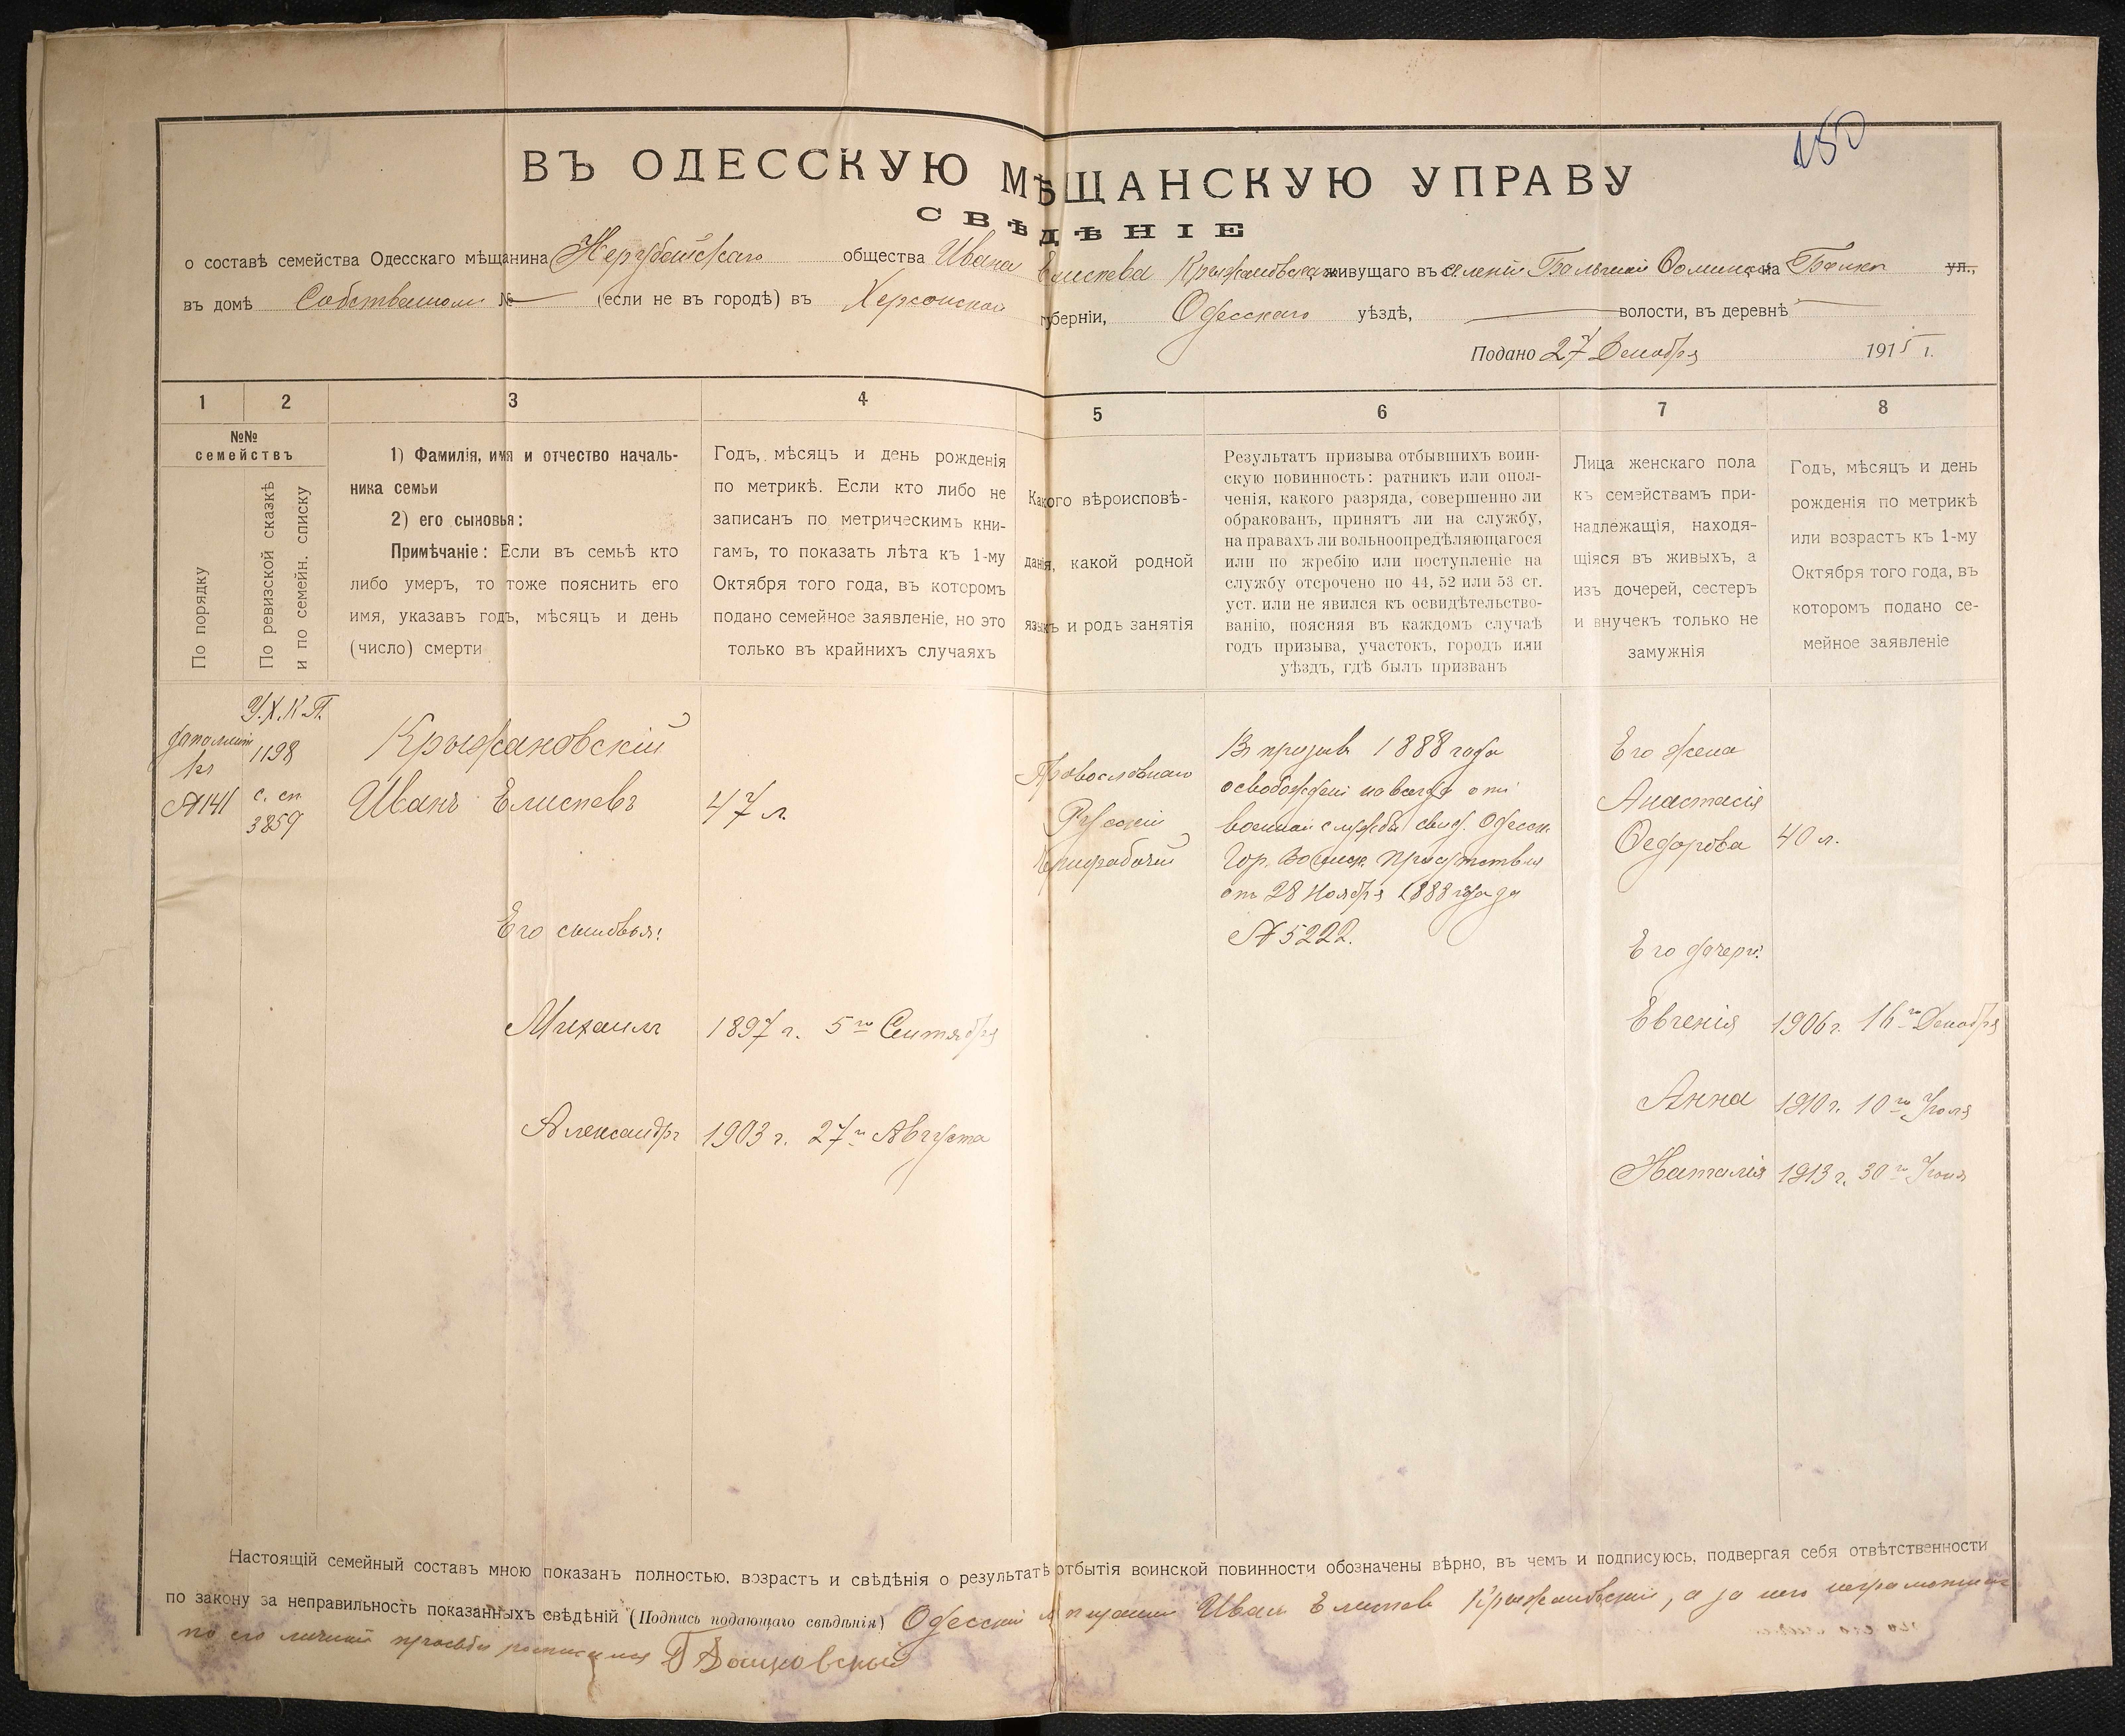 150
ВЪ ОДЕССКУЮ МѢЩАНСКУЮ УПРАВУ
СВѢДѢНІЕ
о составѣ семейства Одесскаго мѣщанина Нерубайскаго общества Ивана Елисеева Крыжановскаго живущаго въ селеніи Большой Фоминой на Балка ул.,
въ домѣ Собственном № (если не въ городѣ) въ Херсонской губерніи, Одесскаго уѣздѣ, волости, въ деревнѣ
Подано 27 Декабря 1915 г.
1 2 3 4 5 6 7 8
№№ семействъ
По порядку
По ревизской сказкѣ и по семейн. списку
1) Фамилія, имя и отчество началь-
ника семьи
2) его сыновья:
Примѣчаніе: Если въ семьѣ кто
либо умеръ, то тоже пояснить его
имя, указавъ годъ, мѣсяцъ и день
(число) смерти
Годъ, мѣсяцъ и день рожденія
по метрикѣ. Если кто либо не
записанъ по метрическимъ кни-
гамъ, то показать лѣта къ 1-му
Октября того года, въ которомъ
подано семейное заявленіе, но это
только въ крайнихъ случаяхъ
Какого вѣроисповѣ-
данія, какой родной
языкъ и родъ занятія
Результатъ призыва отбывшихъ воин-
скую повинность: ратникъ или опол-
ченія, какого разряда, совершенно ли
обракованъ, принятъ ли на службу,
на правахъ ли вольноопредѣляющагося
или по жребію или поступленіе на
службу отсрочено по 44, 52 или 53 ст.
уст. или не явился къ освидѣтельство-
ванію, поясняя въ каждомъ случаѣ
годъ призыва, участокъ, городъ или
уѣздъ, гдѣ былъ призванъ
Лица женскаго пола
къ семействамъ при-
надлежащія, находя-
щіяся въ живыхъ, а
изъ дочерей, сестеръ
и внучекъ только не
замужнія
Годъ, мѣсяцъ и день
рожденія по метрикѣ
или возрастъ къ 1-му
Октября того года, въ
которомъ подано се-
мейное заявленіе
У.Х.К.П.
къ 1198
№141 с. сп. 3859
Крыжановскій
Иванъ Елисеевъ 47 л.
Православнаго
Русскій
Чернорабочій
Въ призыв 1888 года
освобожден навсегда от
военной службы свид. Одесск.
Гор. Воинск. Присутствия
от 28 Ноября 1888 года
№ 5222.
Его жена
Анастасія
Федорова 40 л.
Его сыновья:
Его дочери:
Михаилъ 1897 г. 5го Сентября
Евгенія 1906 г. 16го Декабря
Александръ 1903 г. 27го Августа
Анна 1910 г. 10го Іюля
Наталія 1913 г. 30го Іюля
Настоящій семейный составъ мною показанъ полностью, возрастъ и свѣдѣнія о результатѣ отбытія воинской повинности обозначены вѣрно, въ чемъ и подписуюсь, подвергая себя отвѣтственности
по закону за неправильность показанныхъ свѣдѣній (Подпись подающаго свѣдѣнія) Одесскій мѣщанин Иван Елисеев Крыжановский, а за него неграмотнаго
по его личной просьбе росписался